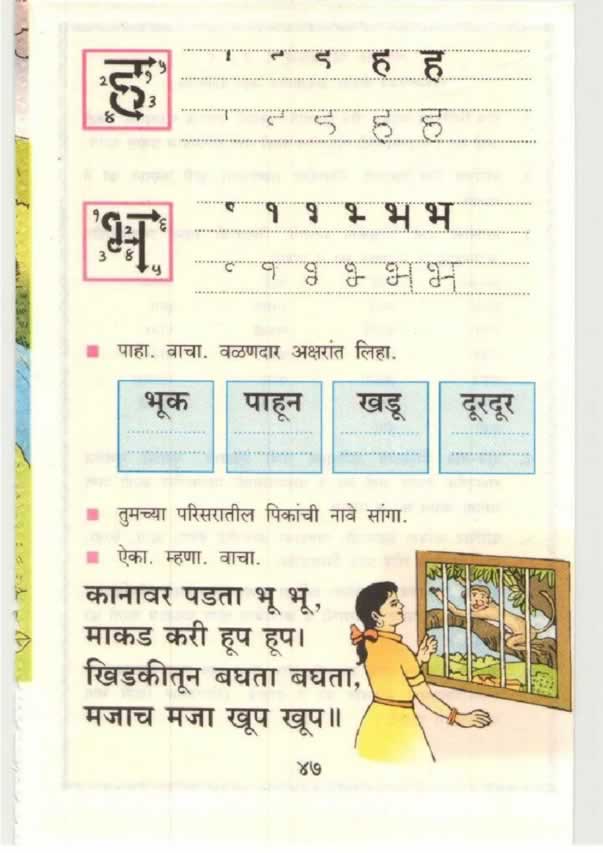 ह
२ १ ५ ३ ४
ह ह
ह ह
भ
१ २ ६ ३ ४ ५
१ भ भ
१ भ भ
पाहा. वाचा. वळणदार अक्षरांत लिहा.
भूक पाहून खडू दूरदूर
तुमच्या परिसरातील पिकांची नावे सांगा.
ऐका. म्हणा. वाचा.
कानावर पडता भू भू,
माकड करी हूप हूप।
खिडकीतून बघता बघता,
मजाच मजा खूप खूप॥
४७